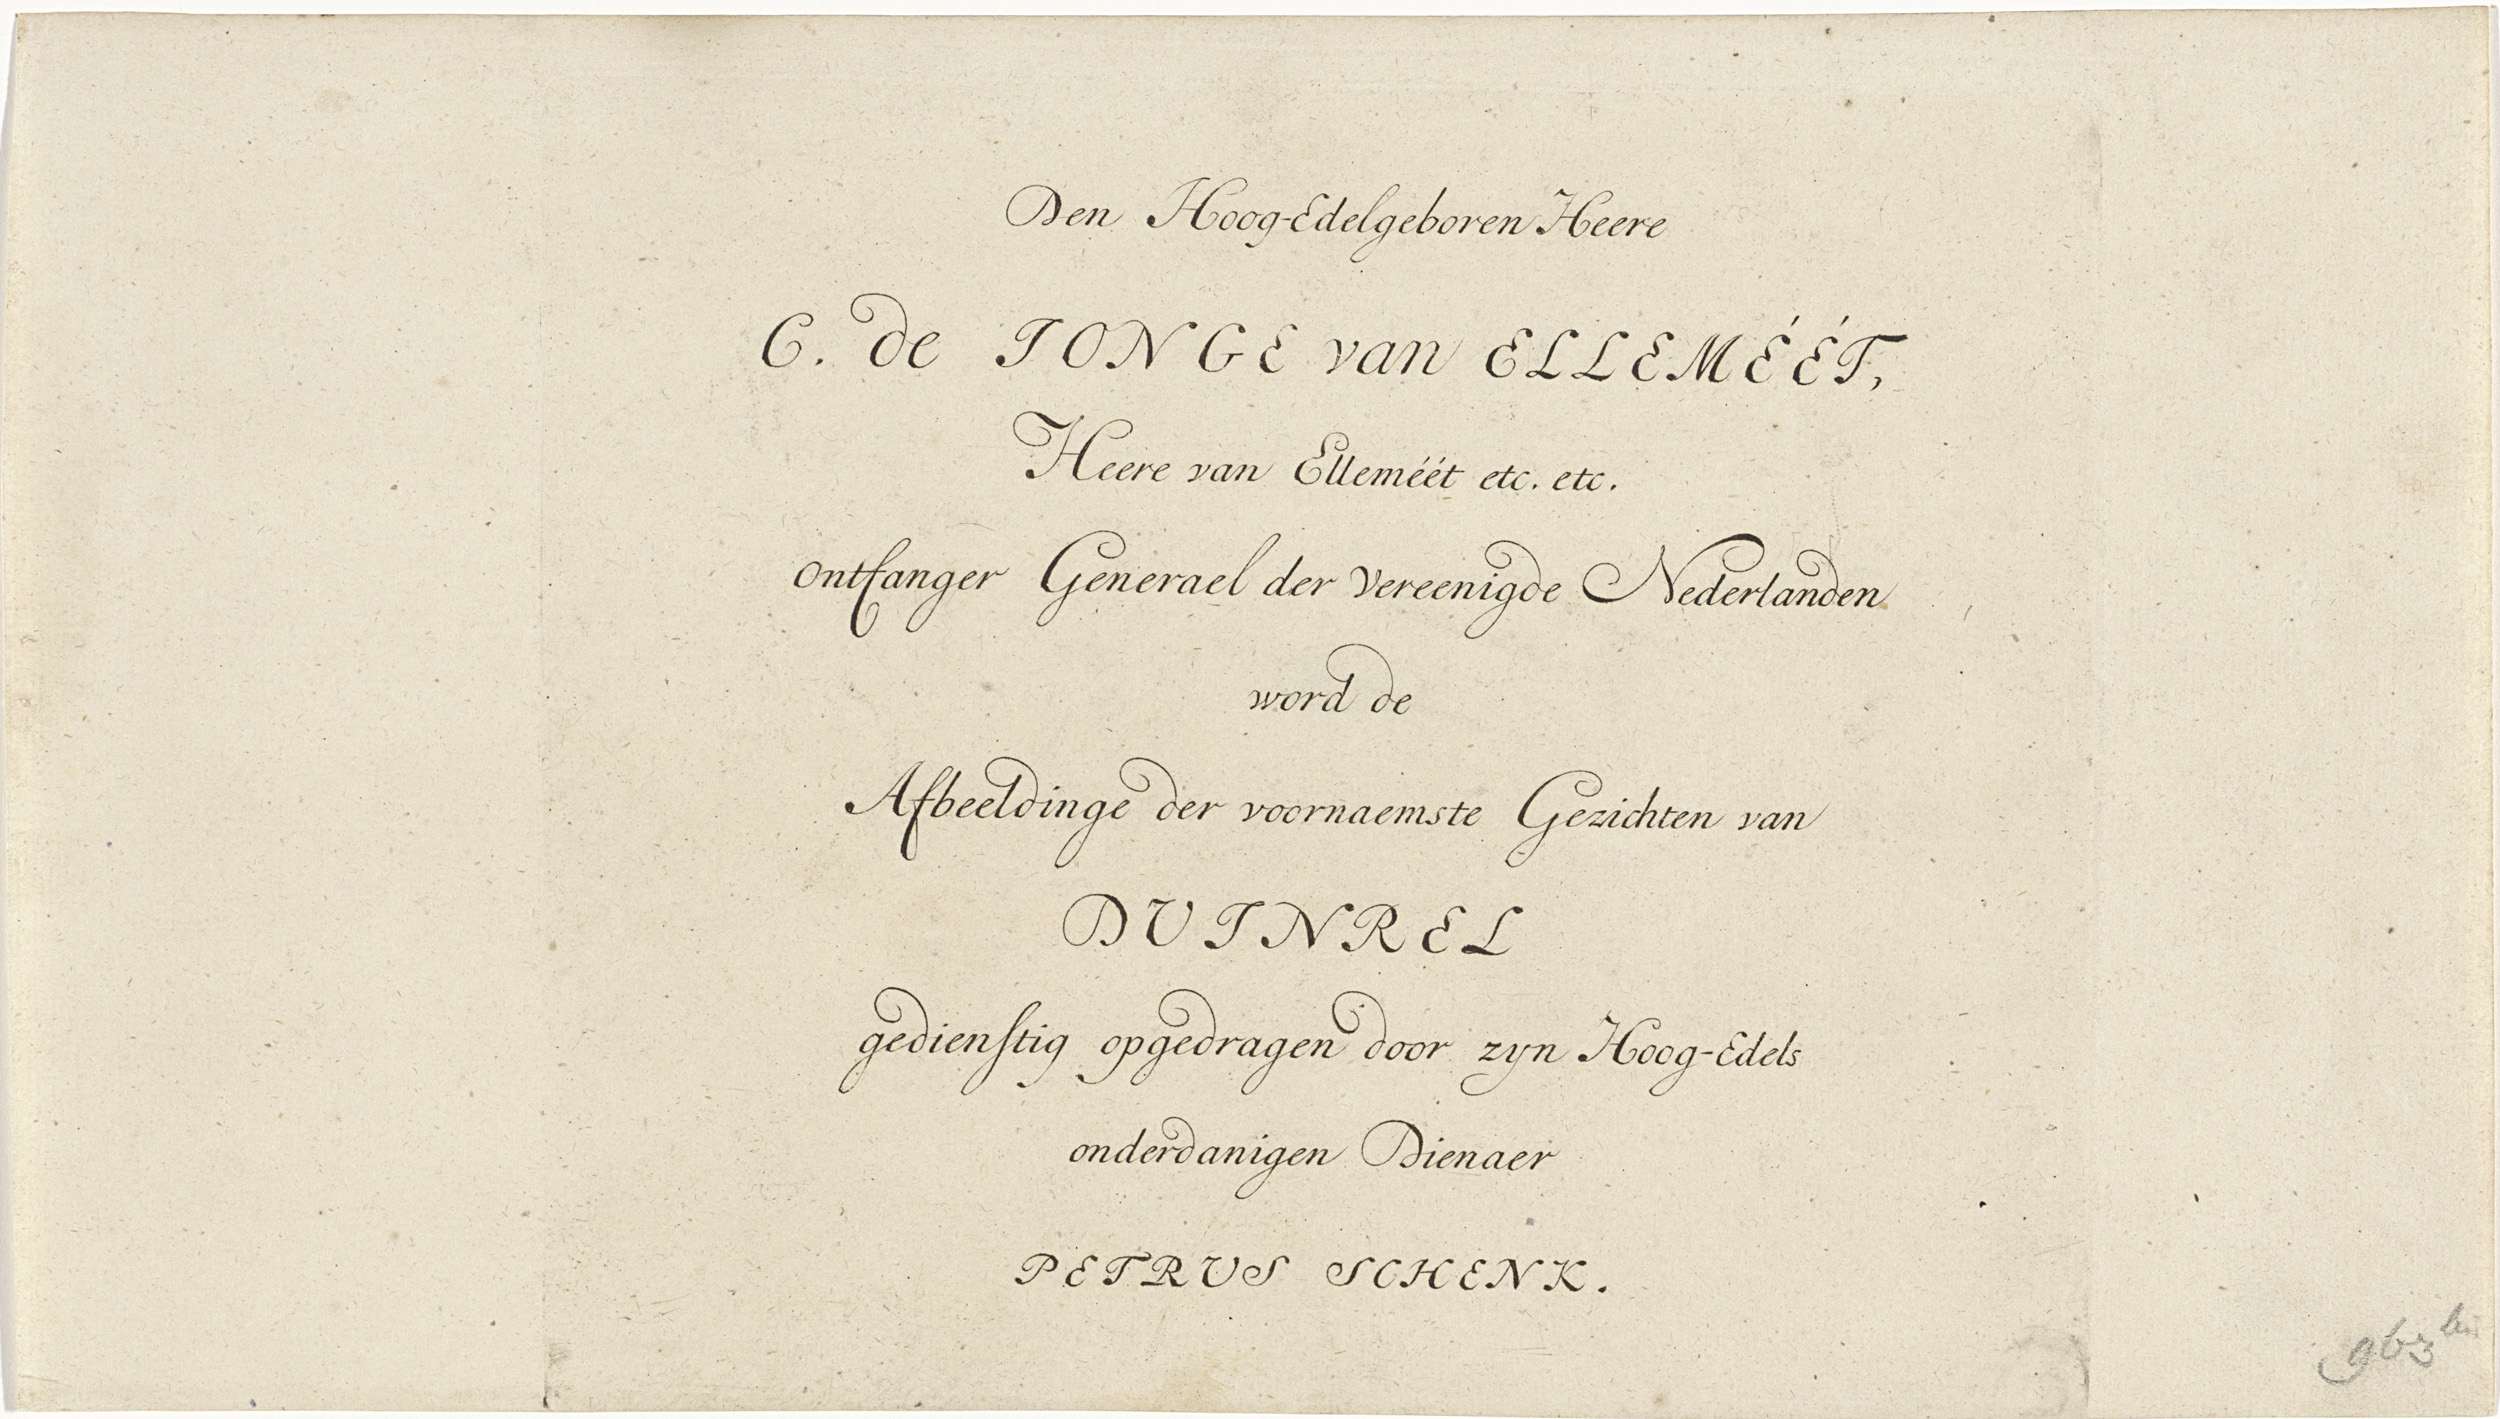 Den Hoog-Edelgeboren Heere
C. de IONGE van ELLEMÉÉT,
Heere van Elleméét etc. etc.
Ontfanger Generael der Vereenigde Nederlanden
word de
Afbeeldinge der voornaemste Gezichten van
DUINREL
gedienstig opgedragen door zyn Hoog-Edels
onderdanigen Dienaer
PETRUS SCHENK.
963